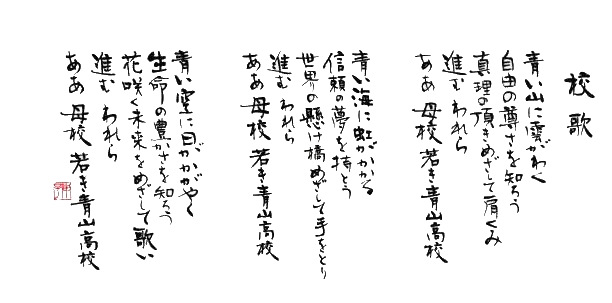 校歌
青い山に雲がわく
自由の尊さを知ろう
真理の頂きめざして肩くみ
進む われら
ああ 母校 若き青山高校
青い海に虹がかかる
信頼の夢を持とう
世界の懸け橋めざして手をとり
進む われら
ああ 母校 若き青山高校
青い空に日がかがやく
生命の豊かさを知ろう
花咲く未来をめざして歌い
進む われら
ああ 母校 若き青山高校